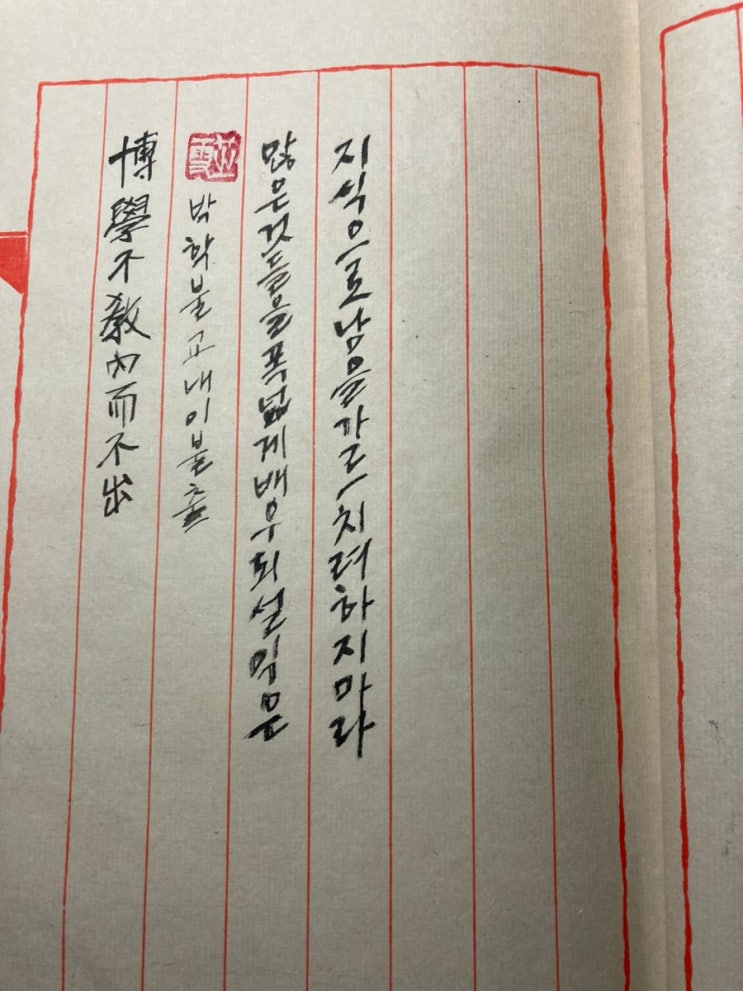 博學不敎內而不出
박학불교내이불출
많은것들을폭넓게배우되설익은
지식으로남을가르치려하지마라